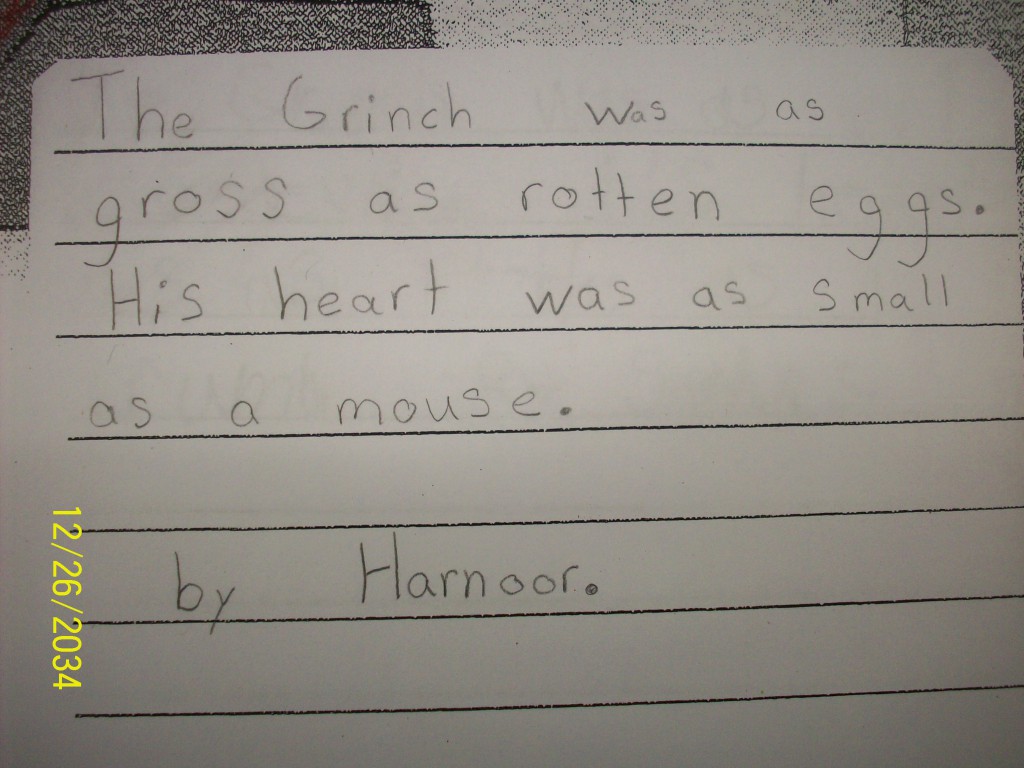 The Grinch was as
gross as rotten eggs.
His heart was as small
as a mouse.
by Harnoor.
12/26/2034